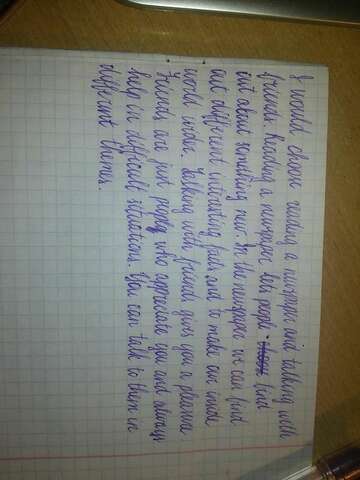 I would choose reading a newspaper and talking with
friends. Reading a newspaper lets people find
out about something new. In the newspaper we can find
out different interesting facts and to make our inside
world wider. Talking with friends gives you a pleasure.
Friends are just people who appreciate you and always
help in difficult situations. You can talk to them in
different themes.